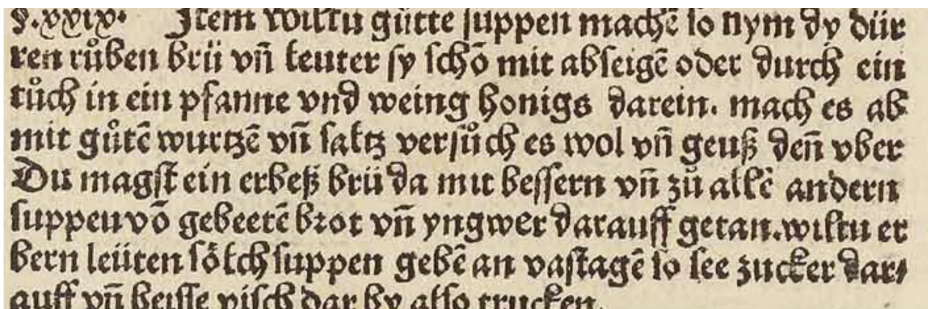 §.xxix. Item wiltu gůtte suppen machē so nym dy dür
ren růben brü vñ leuter sy schō mit abseigē oder durch ein
tůch in ein pfanne vnd weing honigs darein. mach es ab
mit gůtē wurtzē vñ saltz versůch es wol vñ geuß deñ vber
Du magst ein erbeß brü da mit bessern vñ zů allē andern
suppen vō gebeetē brot vñ yngwer darauff getan. wiltu er
bern leüten sőlch suppen gebē an vastagē so see zucker dar⸗
auff vñ beisse visch dar by also trucken.